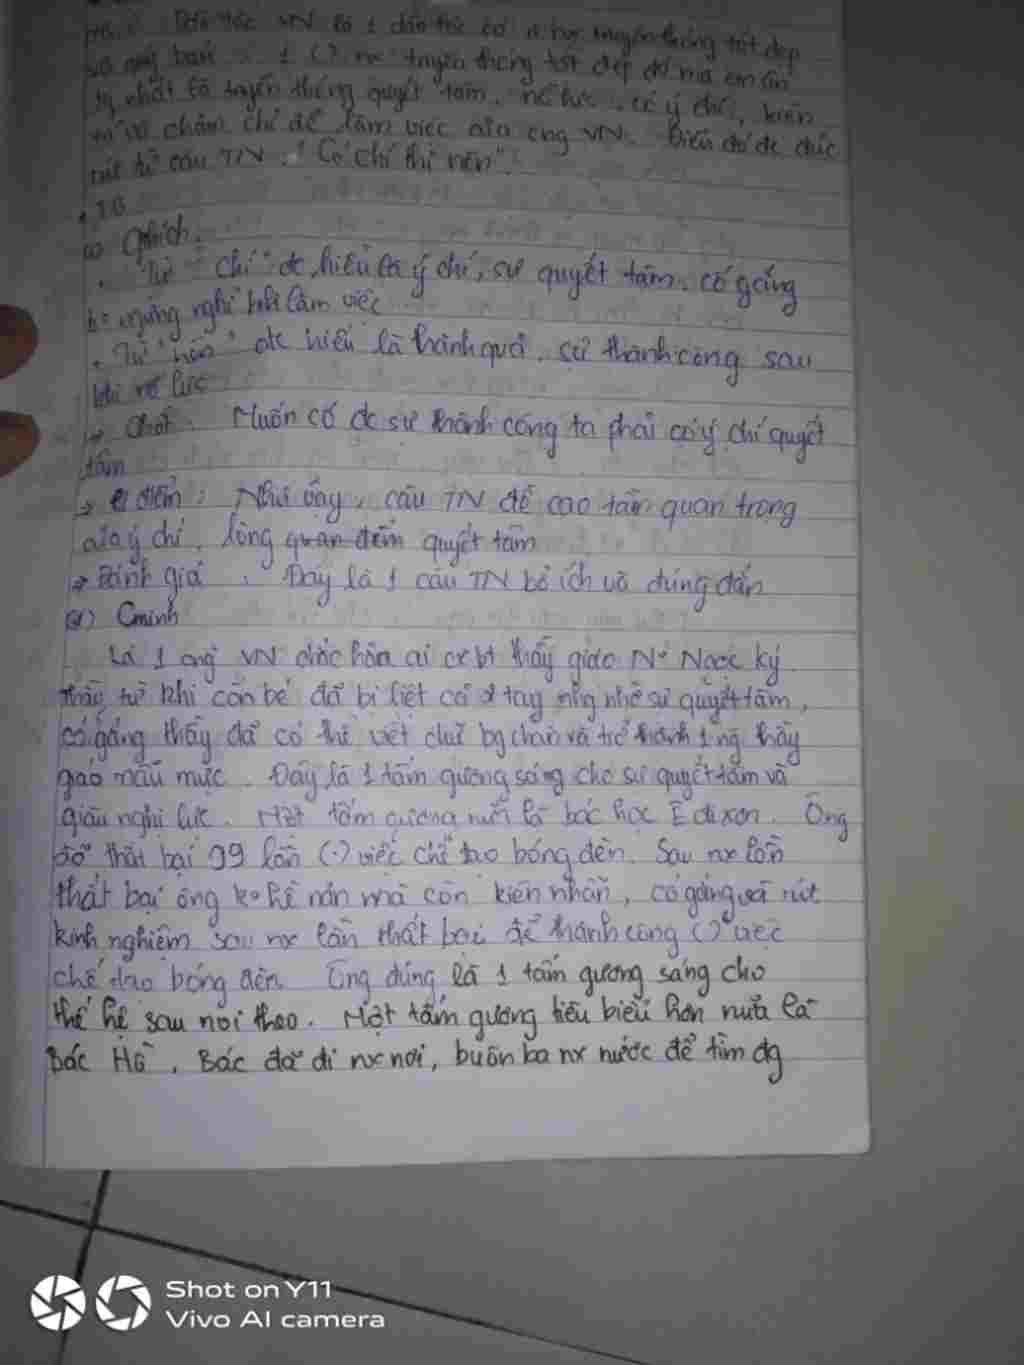 Dân tộc VN là 1 dân tộc có truyền thống tốt đẹp
1 () nx truyền thống tốt đẹp đó mà em ấn
nhất là truyền thống quyết tâm, nỗ lực, có ý chí, kiên
chăm chỉ để làm việc của cng VN. Điều đó đc đúc
từ câu TN: "Có chí thì nên".
TB
Gthích.
. Từ "chí" đc hiểu là ý chí, sự quyết tâm, cố gắng
ko ngừng nghỉ khi làm việc
. Từ "nên" đc hiểu là thành quả, sự thành công sau
khi nỗ lực
→ Chốt: Muốn có đc sự thành công ta phải có ý chí quyết
tâm
→ điểm: Như vậy, câu TN đề cao tầm quan trọng
của ý chí, lòng quan đểm quyết tâm
→ Đánh giá: Đây là 1 câu TN bổ ích và đúng đắn
Cminh
Là 1 ng VN chắc hẳn ai cx bt thầy giáo Ng Ngọc Ký
thầy từ khi còn bé đã bị liệt cả 2 tay nhg nhờ sự quyết tâm,
cố gắng thầy đã có thể viết chữ bg chân và trở thành 1 ng thầy
giáo mẫu mực. Đây là 1 tấm gương sáng cho sự quyết tâm và
giàu nghị lực. Một tấm gương nữa là bác học Ê dixơn. Ông
đã thất bại 99 lần (.) việc chế tạo bóng đèn. Sau nx lần
thất bại ông ko hề nản mà còn kiên nhẫn, cố gắng và rút
kinh nghiệm sau nx lần thất bại để thành công () việc
chế tạo bóng đèn. Ông đúng là 1 tấm gương sáng cho
thế hệ sau noi theo. Một tấm gương tiêu biểu hơn nữa là
Bác Hồ, Bác đã đi nx nơi, buôn ba nx nước để tìm đg
Shot on Y11
Vivo AI camera